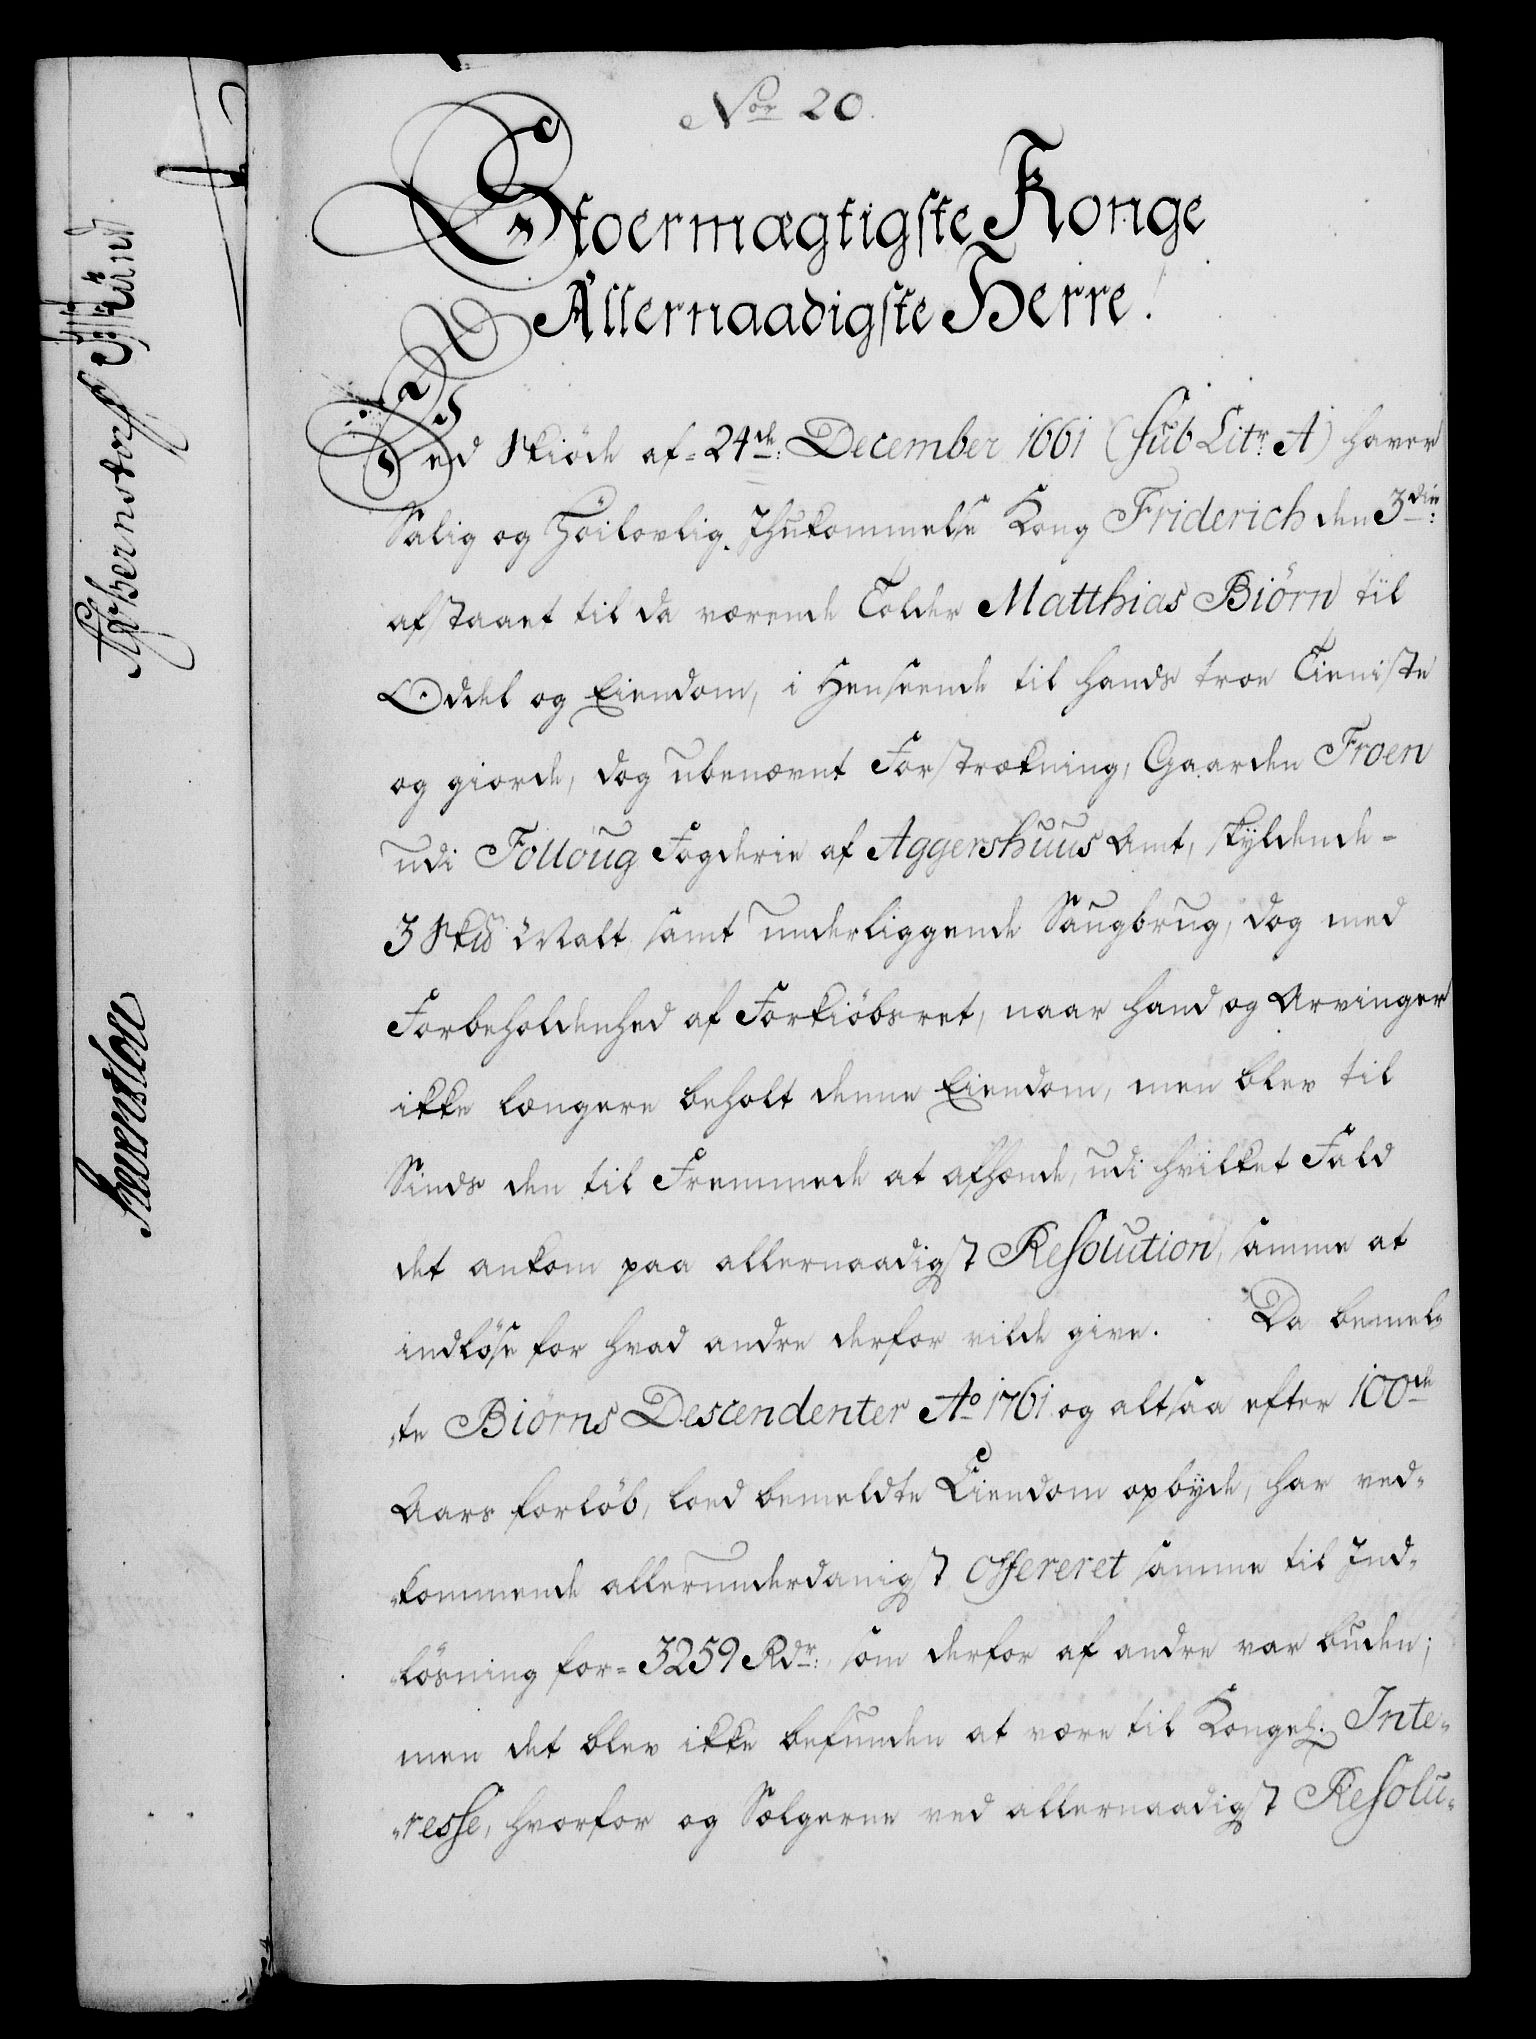 Nor 20.
Stoermægtigste Konge
Allernaadigste Herre!
Ved Skiöde af 24de: December 1661 (sub Litr: A) haver
Salig og Höilovlig Ihukommelse Kong Friderich den 3die:
afstaaet til da værende Tolder Matthias Biörn til
Oddel og Eiendom, i Henseende til hands troe Tieniste
og giorde, dog ubenævnt Forstrækning, Gaarden Froen
udi Follöug Fogderie af Aggershuus Amt, skyldende
3 Skd Malt samt underliggende Saugbrug, dog med
Forbeholdenhed af Forkiöbsret, naar hand og Arvinger
ikke længere beholt denne Eiendom, men blev til
Sinds den til Fremmede at afhænde, udi hvilket Fald
det ankom paa allernaadigst Resolution, samme at
indlöse for hvad andre derfor vilde give. Da bemel-
-te Biörns Descendenter Ao 1761 og altsaa efter 100de
Aars forlöb, loed bemeldte Eiendom opbyde, har ved-
-kommende allerunderdanigst offereret samme til Ind-
-lösning for 3259 Rdr:, som derfor af andre var buden;
men det blev ikke befunden at være til Kongel. Inte-
-resse, hvorfor og Sælgerne ved allernaadigst Resolu-